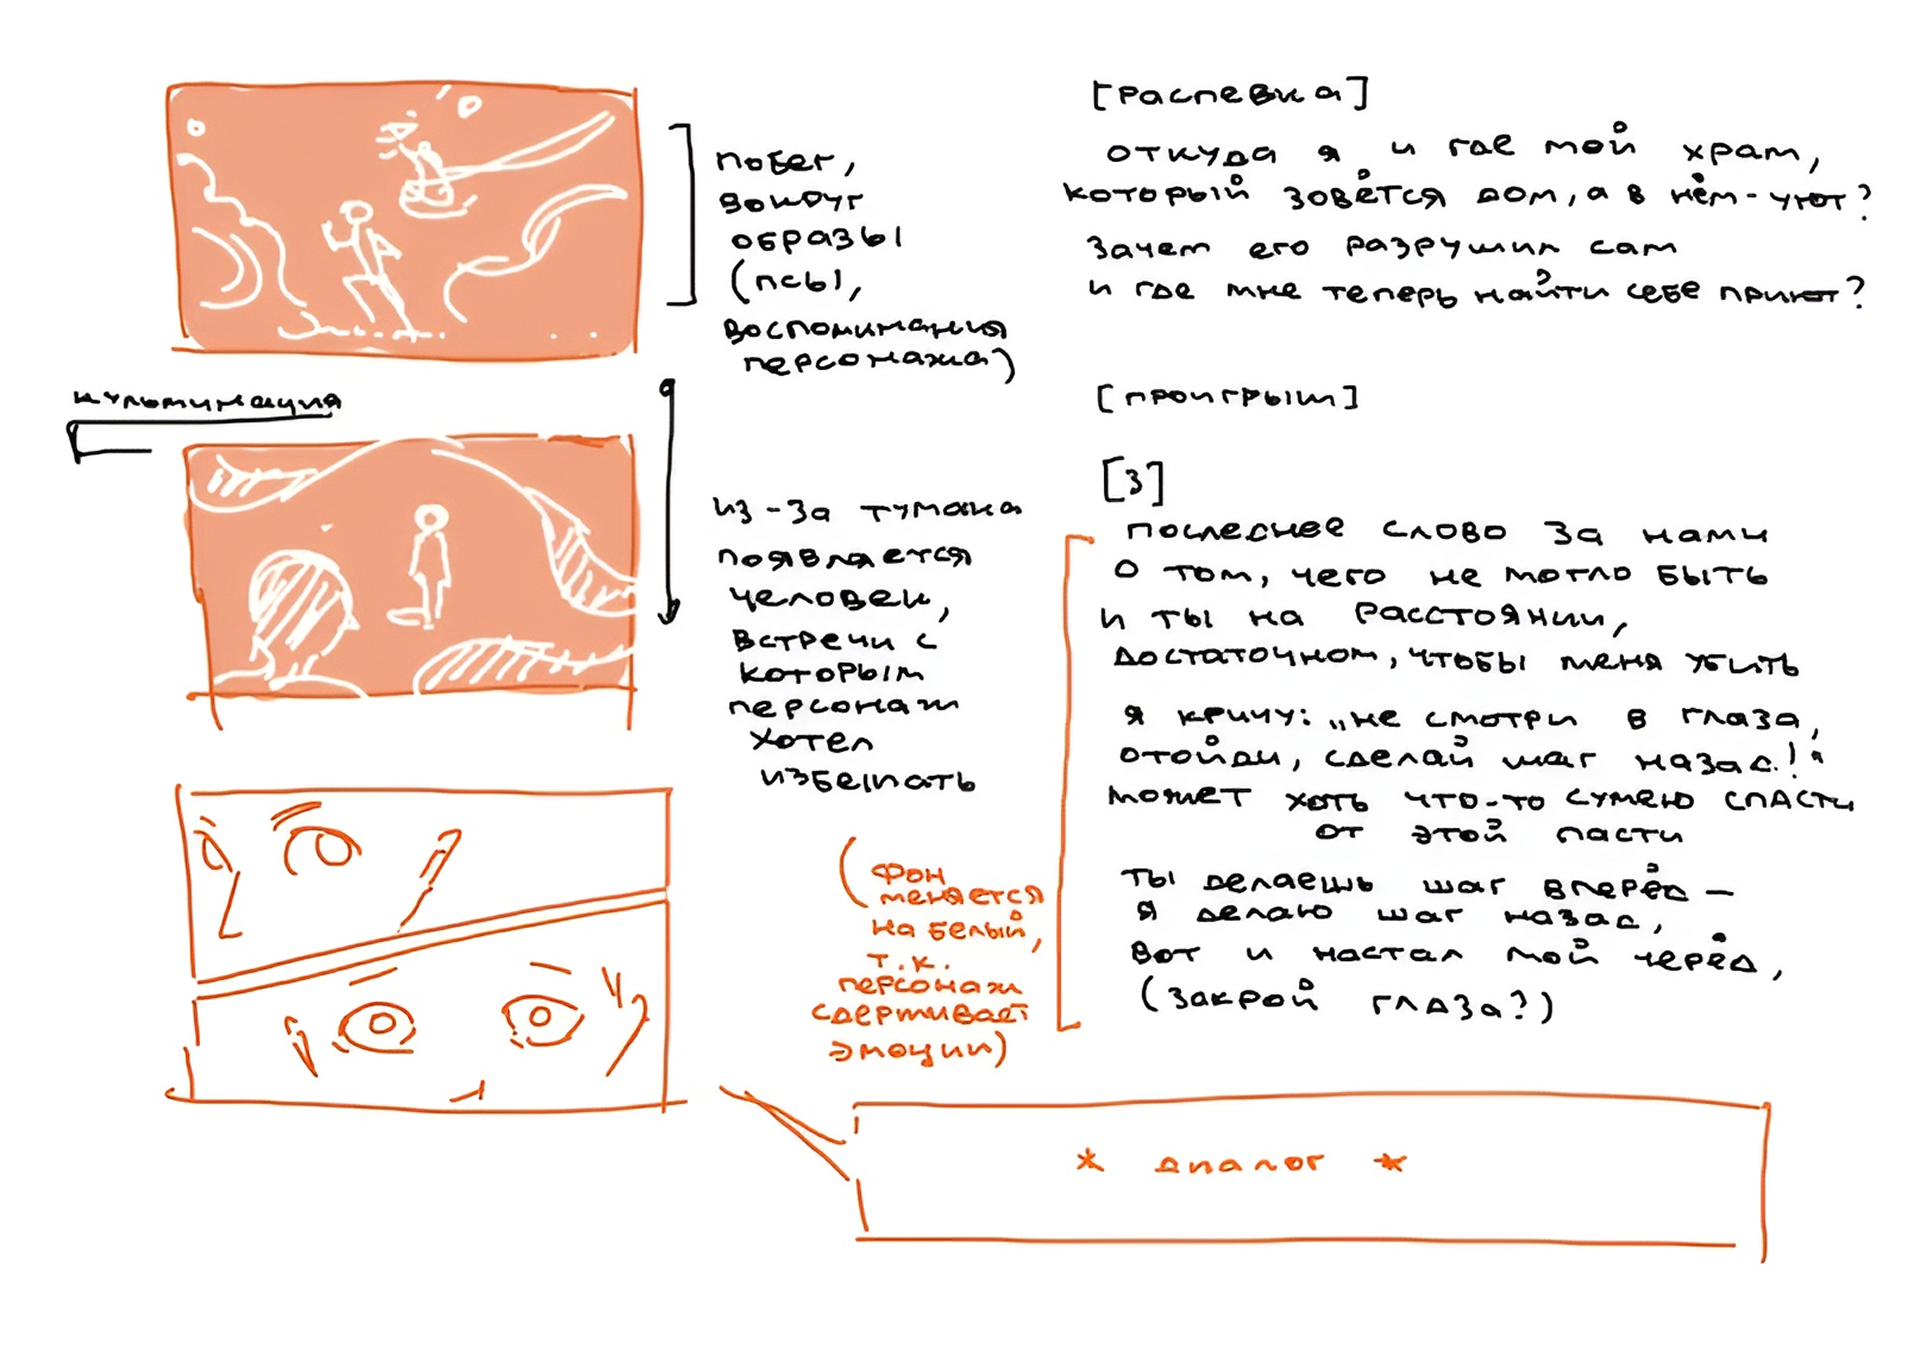 побег,
вокруг
образы
(псы,
воспоминания
персонажа)
кульминация
из-за тумана
появляется
человек,
встречи с
которым
персонаж
хотел
избегать
(фон
меняется
на белый,
т.к.
персонаж
сдерживает
эмоции)
[распевка]
откуда я и где мой храм,
который зовётся дом, а в нём - уют?
зачем его разрушил сам
и где мне теперь найти себе приют?
[проигрыш]
[3]
последнее слово за нами
о том, чего не могло быть
и ты на расстоянии,
достаточном, чтобы меня убить
я кричу: „не смотри в глаза,
отойди, сделай шаг назад!“
может хоть что-то сумею спасти
от этой пасти
ты делаешь шаг вперёд —
я делаю шаг назад,
вот и настал мой черёд,
(закрой глаза?)
* диалог *